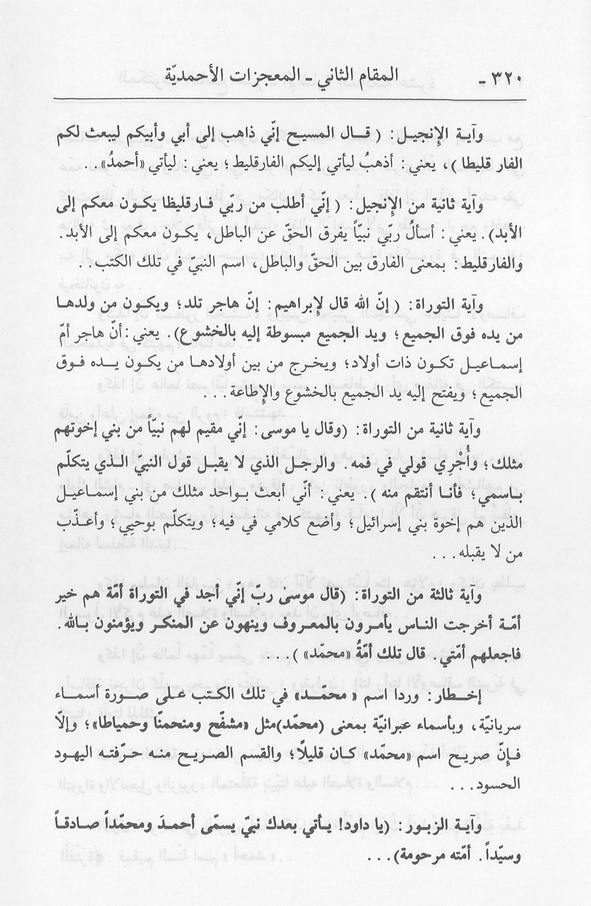 ٣٢٠ - المقام الثاني - المعجزات الأحمديّة
وآية الإنجيل: ( قال المسيح إنّي ذاهب إلى أبي وأبيكم ليبعث لكم
الفار قليطا )، يعني: أذهبُ ليأتي إليكم الفارقليط؛ يعني: ليأتي «أحمدُ»...
وآية ثانية من الإنجيل: ( إنّي أطلب من ربّي فارقليظا يكون معكم إلى
الأبد). يعني: أسألُ ربّي نبيّاً يفرق الحقّ عن الباطل، يكون معكم إلى الأبد.
والفارقليط: بمعنى الفارق بين الحقّ والباطل، اسم النبيّ في تلك الكتب..
وآية التوراة: ( إنّ الله قال لإبراهيم: إنّ هاجر تلد؛ ويكون من ولدها
من يده فوق الجميع؛ ويد الجميع مبسوطة إليه بالخشوع). يعني: أنّ هاجر أمّ
إسماعيل تكون ذات أولاد؛ ويخرج من بين أولادها من يكون يده فوق
الجميع؛ ويفتح إليه يد الجميع بالخشوع والإطاعة...
وآية ثانية من التوراة: (وقال يا موسى: إنّي مقيم لهم نبيّاً من بني إخوتهم
مثلك؛ وأُجْرِي قولي في فمه. والرجل الذي لا يقبل قول النبيّ الذي يتكلّم
باسمي؛ فأنا أنتقم منه ). يعني: أنّي أبعث بواحد مثلك من بني إسماعيل
الذين هم إخوة بني إسرائيل؛ وأضع كلامي في فيه؛ ويتكلّم بوحيي؛ وأعذّب
من لا يقبله...
وآية ثالثة من التوراة: (قال موسى ربّ إنّي أجد في التوراة أمّة هم خير
أمّة أخرجت الناس يأمرون بالمعروف وينهون عن المنكر ويؤمنون بالله.
فاجعلهم أمّتي. قال تلك أمّةُ «محمّد» )...
إخطار: وردا اسم « محمّد» في تلك الكتب على صورة أسماء
سريانيّة، وبأسماء عبرانيّة بمعنى (محمّد)مثل «مشفّح ومنحمنّا وحمياطا»؛ وإلّا
فإنّ صريح اسم «محمّد» كان قليلًا؛ والقسم الصريح منه حرّفته اليهود
الحسود...
وآية الزبور: (يا داود! يأتي بعدك نبيّ يسمّى أحمدَ ومحمّداً صادقاً
وسيّداً. أمّته مرحومة)...